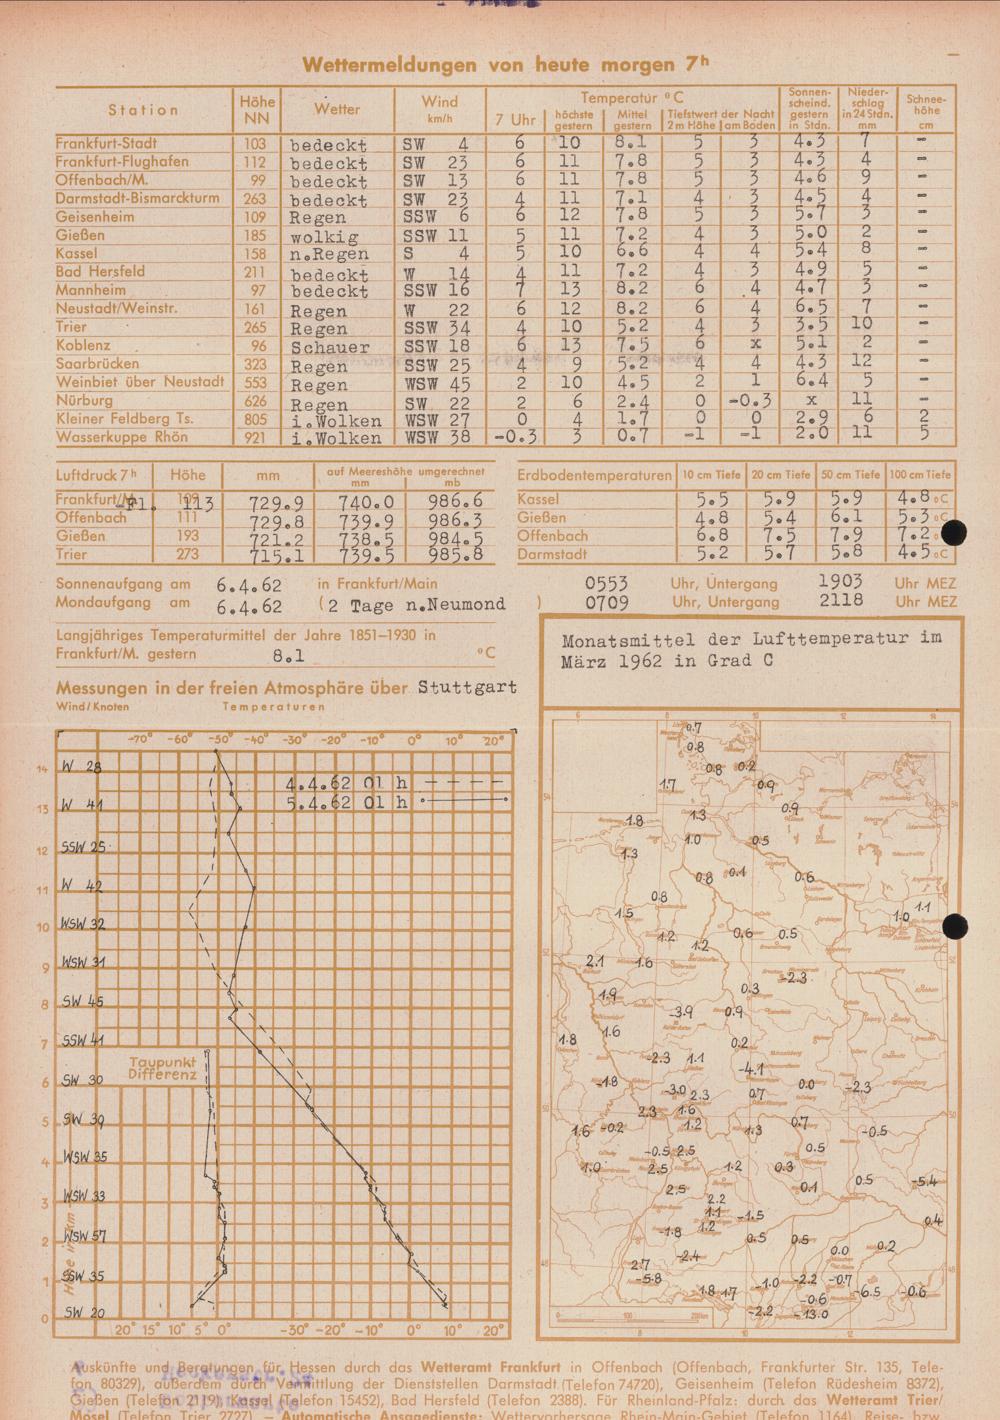 Wettermeldungen von heute morgen 7ʰ
Station Höhe NN Wetter Wind km/h Temperatur °C Sonnen-scheind. gestern in Stdn. Nieder-schlag in 24 Stdn. mm Schnee-höhe cm
7 Uhr höchste gestern Mittel gestern Tiefstwert der Nacht 2 m Höhe am Boden
Frankfurt-Stadt 103 bedeckt SW 4 6 10 8.1 5 3 4.3 7 -
Frankfurt-Flughafen 112 bedeckt SW 23 6 11 7.8 5 3 4.3 4 -
Offenbach/M. 99 bedeckt SW 13 6 11 7.8 5 3 4.6 9 -
Darmstadt-Bismarckturm 263 bedeckt SW 23 4 11 7.1 4 3 4.5 4 -
Geisenheim 109 Regen SSW 6 6 12 7.8 5 3 5.7 3 -
Gießen 185 wolkig SSW 11 5 11 7.2 4 3 5.0 2 -
Kassel 158 n.Regen S 4 5 10 6.6 4 4 5.4 8 -
Bad Hersfeld 211 bedeckt W 14 4 11 7.2 4 3 4.9 5 -
Mannheim 97 bedeckt SSW 16 7 13 8.2 6 4 4.7 3 -
Neustadt/Weinstr. 161 Regen W 22 6 12 8.2 6 4 6.5 7 -
Trier 265 Regen SSW 34 4 10 5.2 4 3 3.5 10 -
Koblenz 96 Schauer SSW 18 6 13 7.5 6 x 5.1 2 -
Saarbrücken 323 Regen SSW 25 4 9 5.2 4 4 4.3 12 -
Weinbiet über Neustadt 553 Regen WSW 45 2 10 4.5 2 1 6.4 5 -
Nürburg 626 Regen SW 22 2 6 2.4 0 -0.3 x 11 -
Kleiner Feldberg Ts. 805 i.Wolken WSW 27 0 4 1.7 0 0 2.9 6 2
Wasserkuppe Rhön 921 i.Wolken WSW 38 -0.3 3 0.7 -1 -1 2.0 11 5
Luftdruck 7ʰ Höhe mm auf Meereshöhe umgerechnet mm mb
Frankfurt/M. -Fl. 109 113 729.9 740.0 986.6
Offenbach 111 729.8 739.9 986.3
Gießen 193 721.2 738.5 984.5
Trier 273 715.1 739.5 985.8
Erdbodentemperaturen 10 cm Tiefe 20 cm Tiefe 50 cm Tiefe 100 cm Tiefe
Kassel 5.5 5.9 5.9 4.8 °C
Gießen 4.8 5.4 6.1 5.3 °C
Offenbach 6.8 7.5 7.9 7.2 °
Darmstadt 5.2 5.7 5.8 4.5 °C
Sonnenaufgang am 6.4.62 in Frankfurt/Main 0553 Uhr, Untergang 1903 Uhr MEZ
Mondaufgang am 6.4.62 (2 Tage n.Neumond ) 0709 Uhr, Untergang 2118 Uhr MEZ
Langjähriges Temperaturmittel der Jahre 1851–1930 in
Frankfurt/M. gestern 8.1 °C
Messungen in der freien Atmosphäre über Stuttgart
Wind/Knoten Temperaturen
-70° -60° -50° -40° -30° -20° -10° 0° 10° 20°
14 W 28
4.4.62 01 h
5.4.62 01 h
13 W 41
12 SSW 25
11 W 42
10 WSW 32
9 WSW 31
8 SW 45
7 SSW 41
Taupunkt
Differenz
6 SW 30
5 SW 39
4 WSW 35
3 WSW 33
2 WSW 57
1 SSW 35
0 SW 20
Höhe in km
20° 15° 10° 5° 0° -30° -20° -10° 0° 10° 20°
Monatsmittel der Lufttemperatur im
März 1962 in Grad C
6 8 10 12 14
0.7
0.8
0.8 0.2
1.7 0.9
0.9
1.8 1.3
1.0 0.5
1.3
0.8 0.1 0.6
0.8
1.5 1.0 1.1
1.2 1.2 0.6 0.5
2.1 1.6
-2.3
1.9 0.3
-3.9 0.9
1.8 1.6
0.2
-2.3 1.1
-4.1
-1.8 -3.0 2.3 0.7 0.0 -2.3
2.3 1.6
1.6 -0.2 1.2 1.3 0.7 -0.5
-0.5 2.5 0.5
1.0 2.5 1.2 0.3
2.5 0.1 0.5 -5.4
2.2
1.1 -1.5 0.4
-1.8 1.2 0.5 0.5
0.0 0.2
-2.4
2.7
-5.8 -1.0 -2.2 -0.7
1.8 1.7 -6.5 -0.6
-0.6
-2.2 -13.0
Auskünfte und Beratungen für Hessen durch das Wetteramt Frankfurt in Offenbach (Offenbach, Frankfurter Str. 135, Tele-
fon 80329), außerdem durch Vermittlung der Dienststellen Darmstadt (Telefon 74720), Geisenheim (Telefon Rüdesheim 8372),
Gießen (Telefon 2119), Kassel (Telefon 15452), Bad Hersfeld (Telefon 2388). Für Rheinland-Pfalz: durch das Wetteramt Trier/
Mosel (Telefon Trier 2727). — Automatische Ansagedienste: Wettervorhersage Rhein-Main-Gebiet (Telefon 1164), Reise-